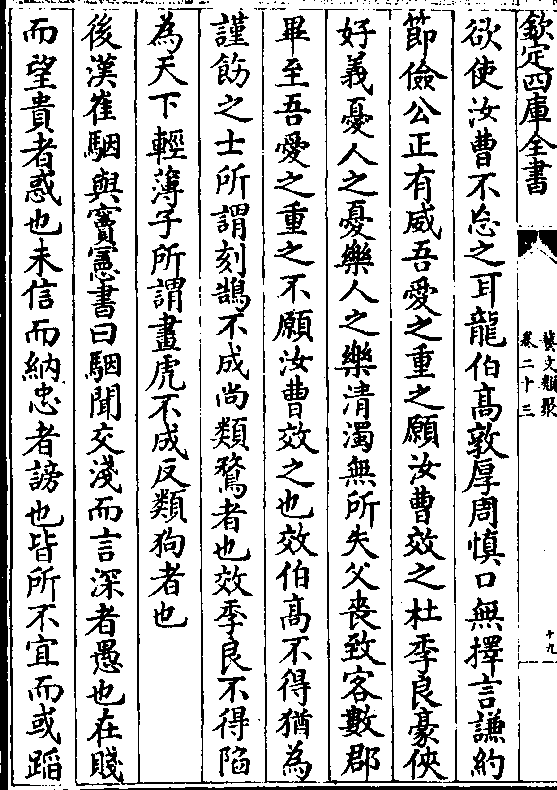 欽定四庫全書
藝文類聚
卷二十三
十九
欲使汝曹不忘之耳龍伯髙敦厚周慎口無擇言謙約
節儉公正有威吾愛之重之願汝曹效之杜季良豪俠
好義憂人之憂樂人之樂清濁無所失父喪致客數郡
畢至吾愛之重之不願汝曹效之也效伯髙不得猶為
謹飭之士所謂刻鵠不成尚類鶩者也效季良不得陷
為天下輕薄子所謂畫虎不成反類狗者也
後漢崔駰與竇憲書曰駰聞交淺而言深者愚也在賤
而望貴者惑也未信而納忠者謗也皆所不宜而或蹈